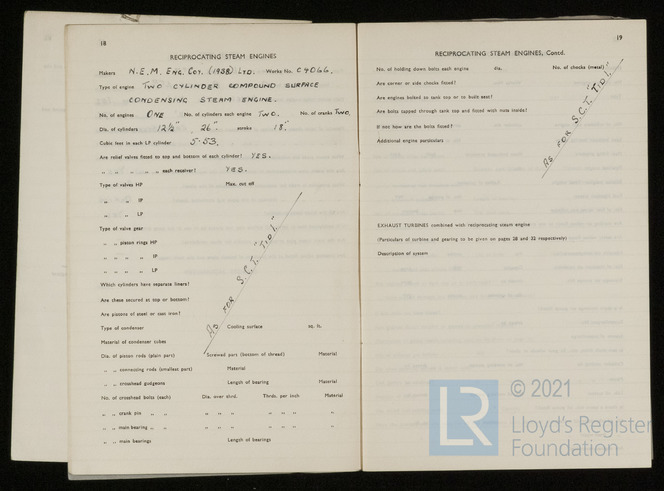 18
RECIPROCATING STEAM ENGINES
Makers N.E.M. ENG. COY. (1938) LTD. Works No. C4066.
Type of engine TWO CYLINDER COMPOUND SURFACE
CONDENSING STEAM ENGINE.
No. of engines ONE No. of cylinders each engine TWO. No. of cranks TWO.
Dia. of cylinders 12½" 26" stroke 18"
Cubic feet in each LP cylinder 5.53.
Are relief valves fitted to top and bottom of each cylinder? YES.
" " " " " each receiver? YES.
Type of valves HP Max. cut off
" " IP
" " LP
Type of valve gear
" " piston rings HP
" " " " IP
" " " " LP
Which cylinders have separate liners?
Are these secured at top or bottom?
Are pistons of steel or cast iron?
AS FOR S.C.T. "TID 1."
Type of condenser Cooling surface sq. ft.
Material of condenser tubes
Dia. of piston rods (plain part) Screwed part (bottom of thread) Material
" " connecting rods (smallest part) Material
" " crosshead gudgeons Length of bearing Material
No. of crosshead bolts (each) Dia. over thrd. Thrds. per inch Material
" " crank pin " " " " " " " " " "
" " main bearing " " " " " " " " " "
" " main bearings Length of bearings
19
RECIPROCATING STEAM ENGINES, Contd.
No. of holding down bolts each engine dia. No. of chocks (metal)
Are corner or side chocks fitted?
Are engines bolted to tank top or to built seat?
Are bolts tapped through tank top and fitted with nuts inside?
If not how are the bolts fitted?
Additional engine particulars
AS FOR S.C.T. "TID 1."
EXHAUST TURBINES combined with reciprocating steam engine
(Particulars of turbine and gearing to be given on pages 28 and 32 respectively)
Description of system
LR
© 2021
Lloyd's Register
Foundation